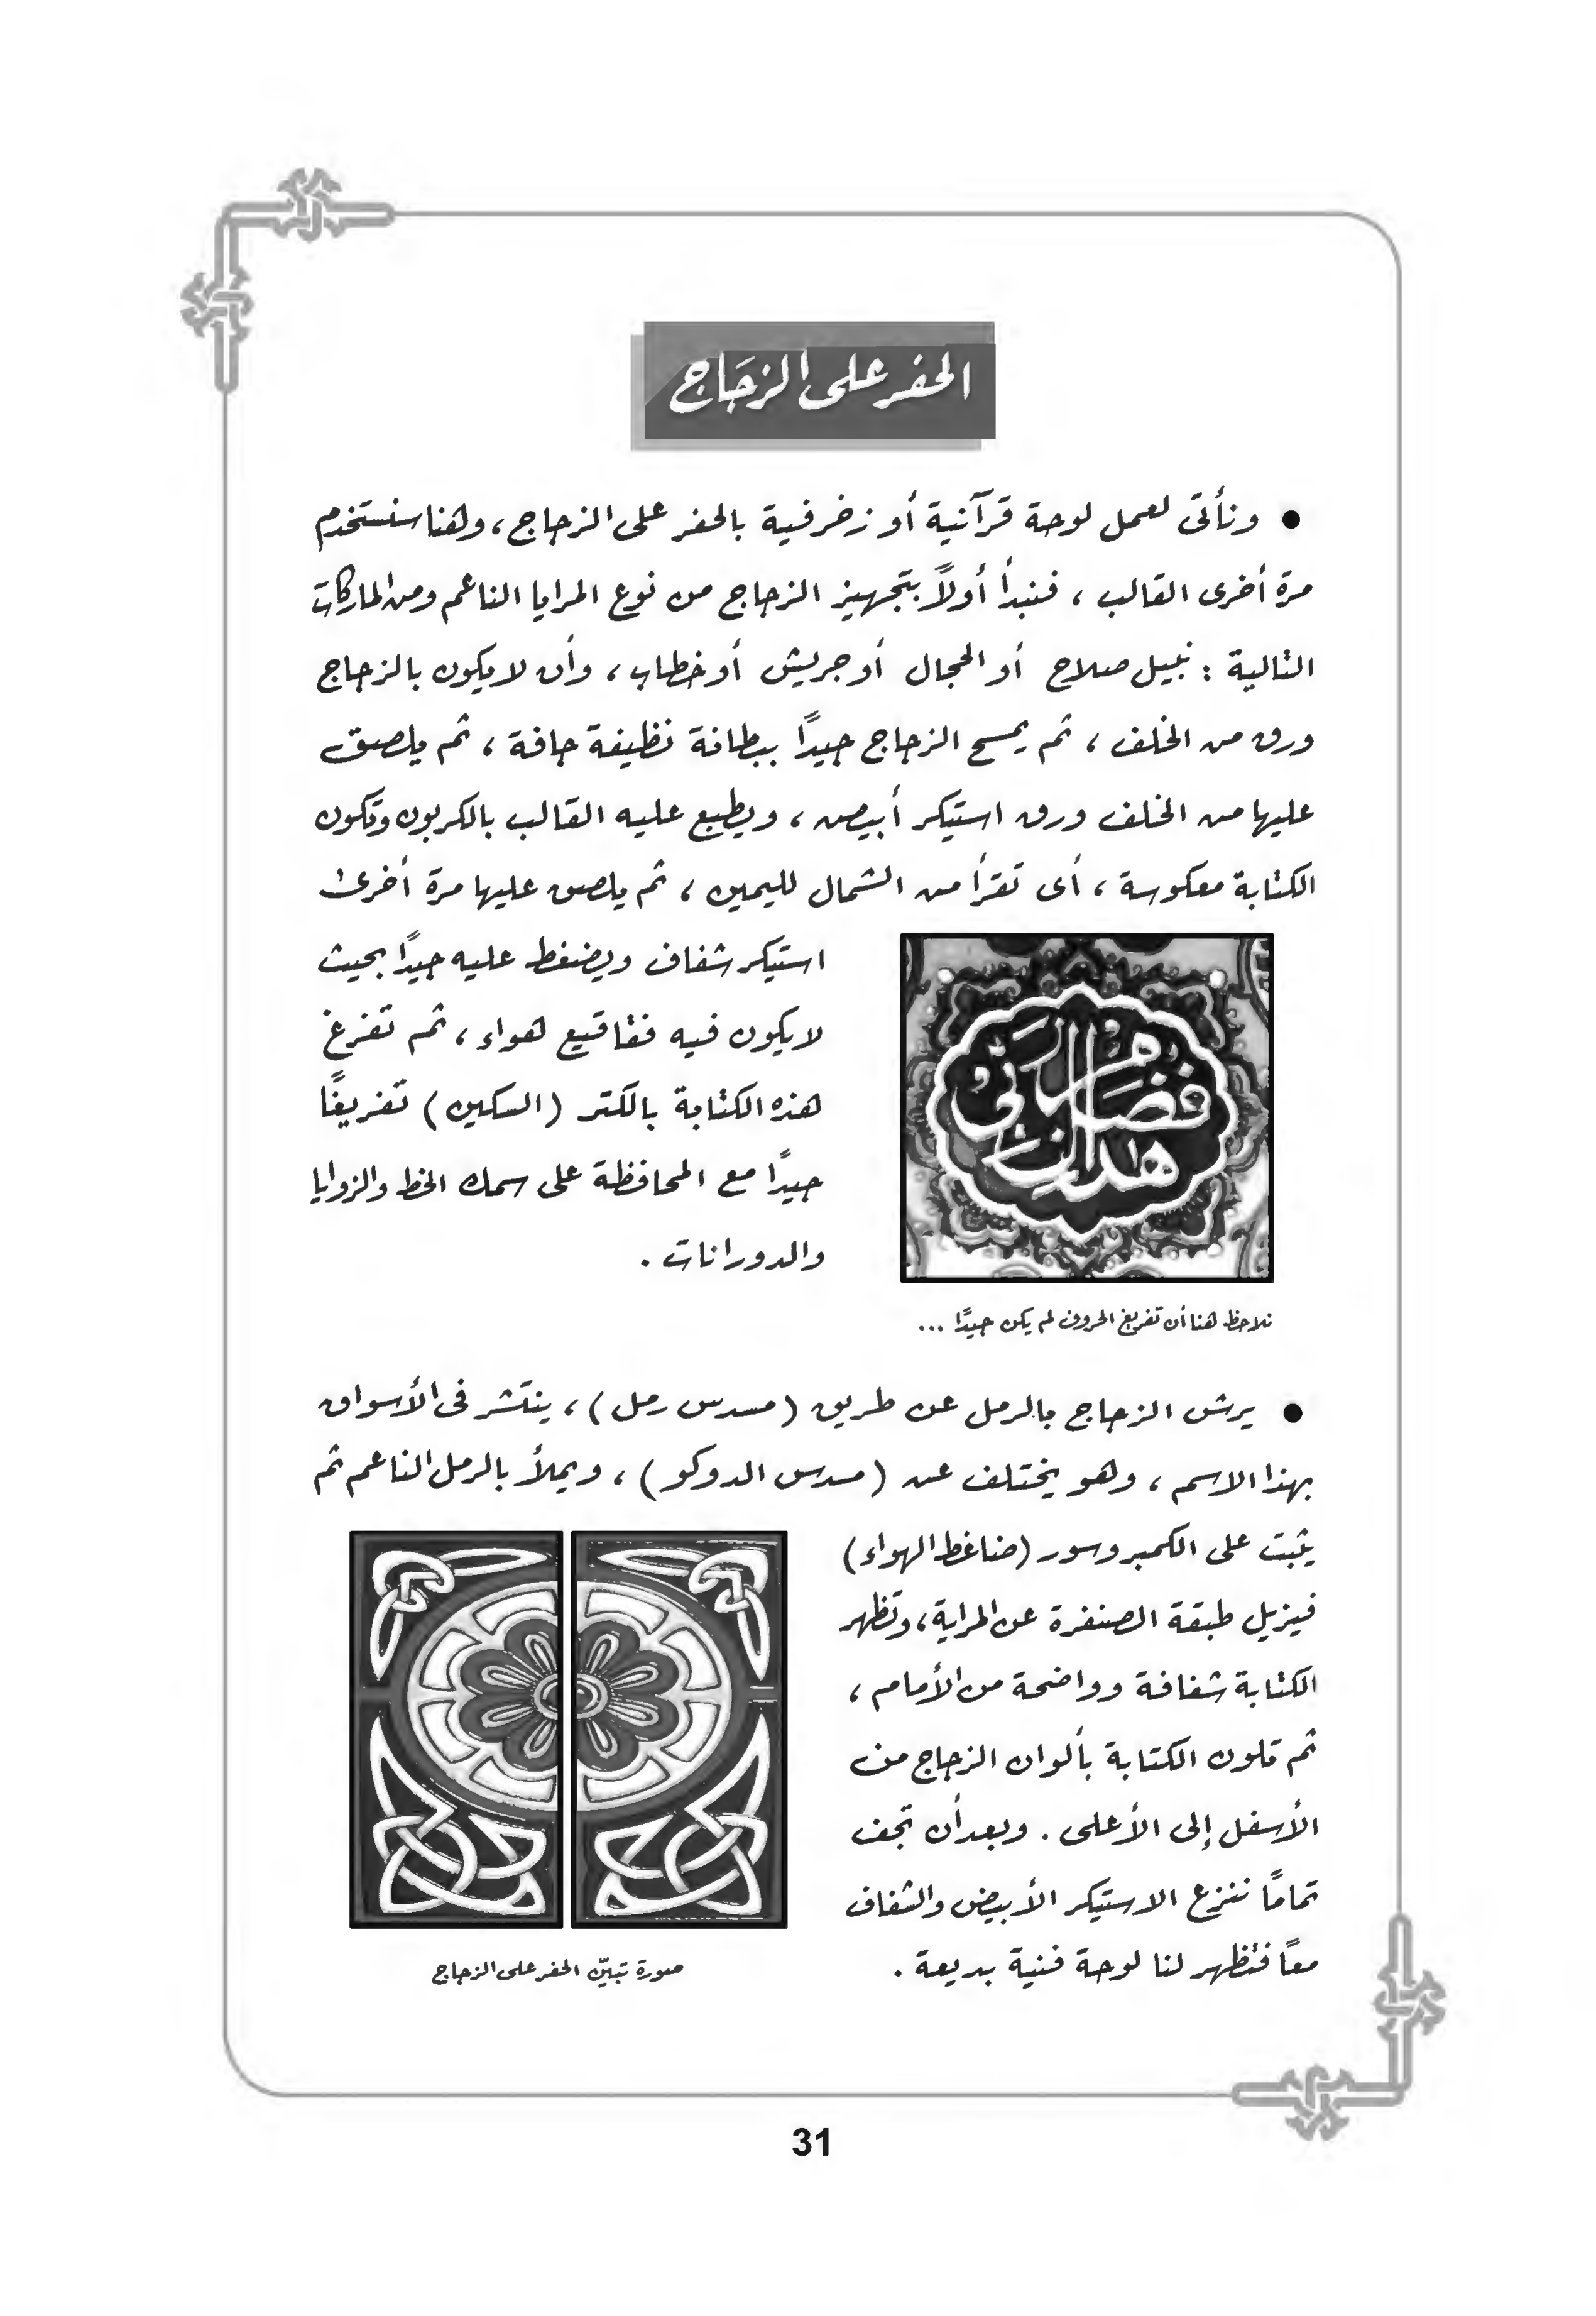 الحفر على الزجَاج
● ونأتى لعمل لوحة قرآنية أو زخرفية بالحفر على الزجاج، وهنا سنستخدم
مرة أخرى القالب، فنبدأ أولاً بتجهيز الزجاج من نوع المرايا الناعم ومن الماركات
التالية: نبيل صلاح أو الحجال أو جريش أو خطاب، وأن لا يكون بالزجاج
ورق من الخلف، ثم يمسح الزجاج جيدًا ببطانة نظيفة جافة، ثم يلصق
عليها من الخلف ورق استيكر أبيض، ويطبع عليه القالب بالكربون وتكون
الكتابة معكوسة، أى تقرأ من الشمال لليمين، ثم يلصق عليها مرة أخرى
استيكر شفاف ويضغط عليه جيدًا بحيث
لا يكون فيه فقاقيع هواء، ثم تفرغ
هذه الكتابة بالكتر (السكين) تفريغًا
جيدًا مع المحافظة على سمك الخط والزوايا
والدورانات.
هذا من فضل ربى
نلاحظ هنا أن تفريغ الحروف لم يكن جيدًا ...
● يرش الزجاج بالرمل عن طريق (مسدس رمل)، ينتشر فى الأسواق
بهذا الاسم، وهو يختلف عن (مسدس الدوكو)، ويملأ بالرمل الناعم ثم
يثبت على الكمبروسور (ضاغط الهواء)
فيزيل طبقة الصنفرة عن المراية، وتظهر
الكتابة شفافة وواضحة من الأمام،
ثم تلون الكتابة بألوان الزجاج من
الأسفل إلى الأعلى. وبعد أن تجف
تمامًا ننزع الاستيكر الأبيض والشفاف
معًا فتظهر لنا لوحة فنية بديعة.
صورة تبيّن الحفر على الزجاج
31